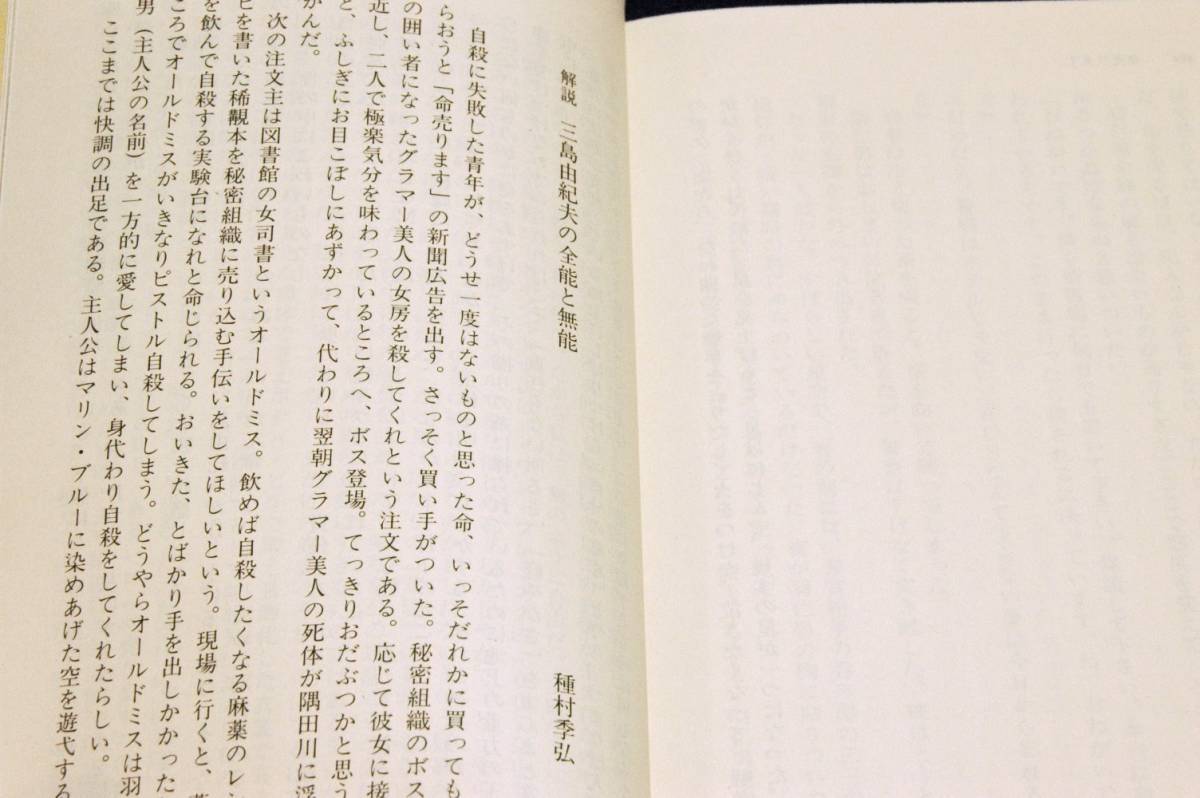 解説　三島由紀夫の全能と無能
種村季弘
自殺に失敗した青年が、どうせ一度はないものと思った命、いっそだれかに買っても
らおうと「命売ります」の新聞広告を出す。さっそく買い手がついた。秘密組織のボス
の囲い者になったグラマー美人の女房を殺してくれという注文である。応じて彼女に接
近し、二人で極楽気分を味わっているところへ、ボス登場。てっきりおだぶつかと思う
と、ふしぎにお目こぼしにあずかって、代わりに翌朝グラマー美人の死体が隅田川に浮
かんだ。
次の注文主は図書館の女司書というオールドミス。飲めば自殺したくなる麻薬のレシ
ピを書いた稀覯本を秘密組織に売り込む手伝いをしてほしいという。現場に行くと、薬
を飲んで自殺する実験台になれと命じられる。おいきた、とばかり手を出しかかった
ころでオールドミスがいきなりピストル自殺してしまう。どうやらオールドミスは羽
男（主人公の名前）を一方的に愛してしまい、身代わり自殺をしてくれたらしい。
ここまでは快調の出足である。主人公はマリン・ブルーに染めあげた空を遊弋する